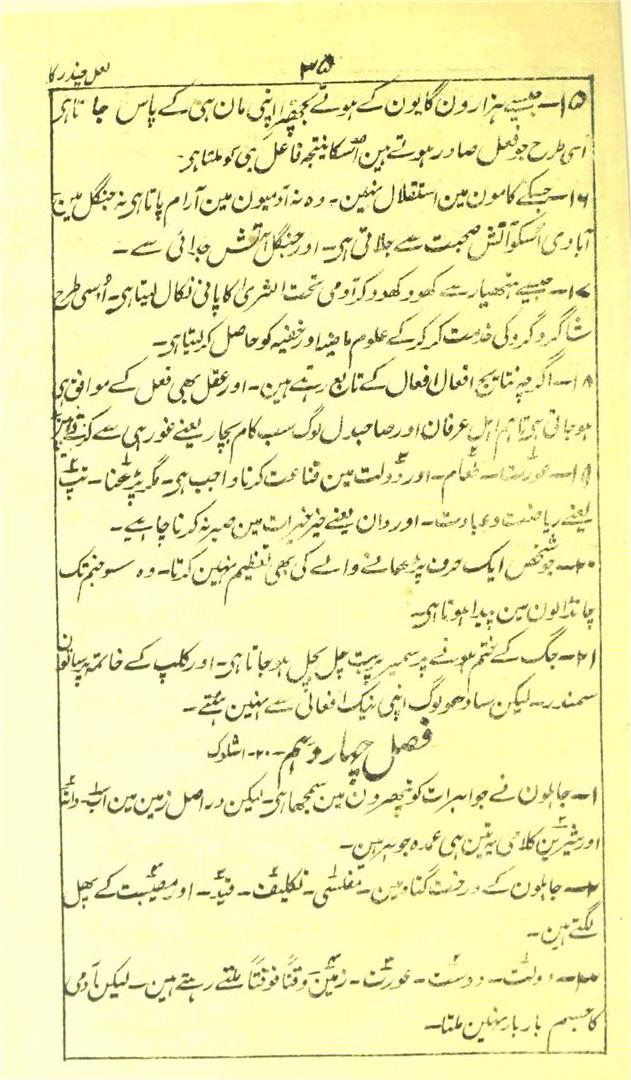 ۳۵ لعل چندرکا
۱۵۔ جیسے ہزارون گایون کے ہوتے بچھڑا اپنی مان ہی کے پاس جاتا ہی
اُسی طرح جو فعل صادر ہوتے ہین اُسکا نتیجہ فاعل ہی کو ملتا ہی۔
۱۶۔ جسکے کامون مین استقلال نہین۔ وہ نہ آدمیون مین آرام پاتا ہی نہ جنگل مین۔
آبادی اُسکو آتش صحبت سے جلاتی ہی۔ اور جنگل آتش جدائی سے۔
۱۷۔ جیسے ہتھیار سے کھود کھود کر آدمی تحت الثریٰ کا پانی نکال لیتا ہی۔ اُسی طرح
شاگرد گرو کی خدمت کر کر کے علوم ماضیہ اور خفیہ کو حاصل کر لیتا ہی۔
۱۸۔ اگرچہ نتایج افعال افعال کے تابع رہتے ہین۔ اور عقل بھی فعل کے موافق ہی
ہو جاتی ہی تاہم اہل عرفان اور صاحبدل لوگ سب کام بچار یعنے غور ہی سے کرتے ہین
۱۹۔ عورت۔ طعام۔ اور دولت مین قناعت کرنا واجب ہی۔ مگر پڑھنا۔ تپ
یعنے ریاضت و عبادت۔ اور دان یعنے خیر خیرات مین صبر نہ کرنا چاہیے۔
۲۰۔ جو شخص ایک حرف پڑھانے والے کی بھی تعظیم نہین کرتا۔ وہ سو جنم تک
چانڈالون مین پیدا ہوتا ہی۔
۲۱۔ جگ کے ختم ہونے پر سمیر پربت چل بچل ہو جاتا ہی۔ اور کلپ کے خاتمہ پر ساتون
سمندر۔ لیکن سادھو لوگ اپنی نیک افعالی سے نہین ہٹتے۔
فصل چہاردہم۔ ۲۰۔ اشلوک
۱۔ جاہلون نے جواہرات کو پتھرون مین سمجھا ہی۔ لیکن در اصل زمین مین آب۔ دانہ
اور شیرین کلامی یہ تین ہی عمدہ جوہر ہین۔
۲۔ جاہلون کے درخت گناہ مین۔ مفلسی۔ تکلیف۔ قید۔ اور مصیبت کے پھل
لگتے ہین۔
۳۔ دولت۔ دوست۔ عورت۔ زمین وقتاً فوقتاً ملتے رہتے ہین۔ لیکن آدمی
کا جسم بار بار نہین ملتا۔